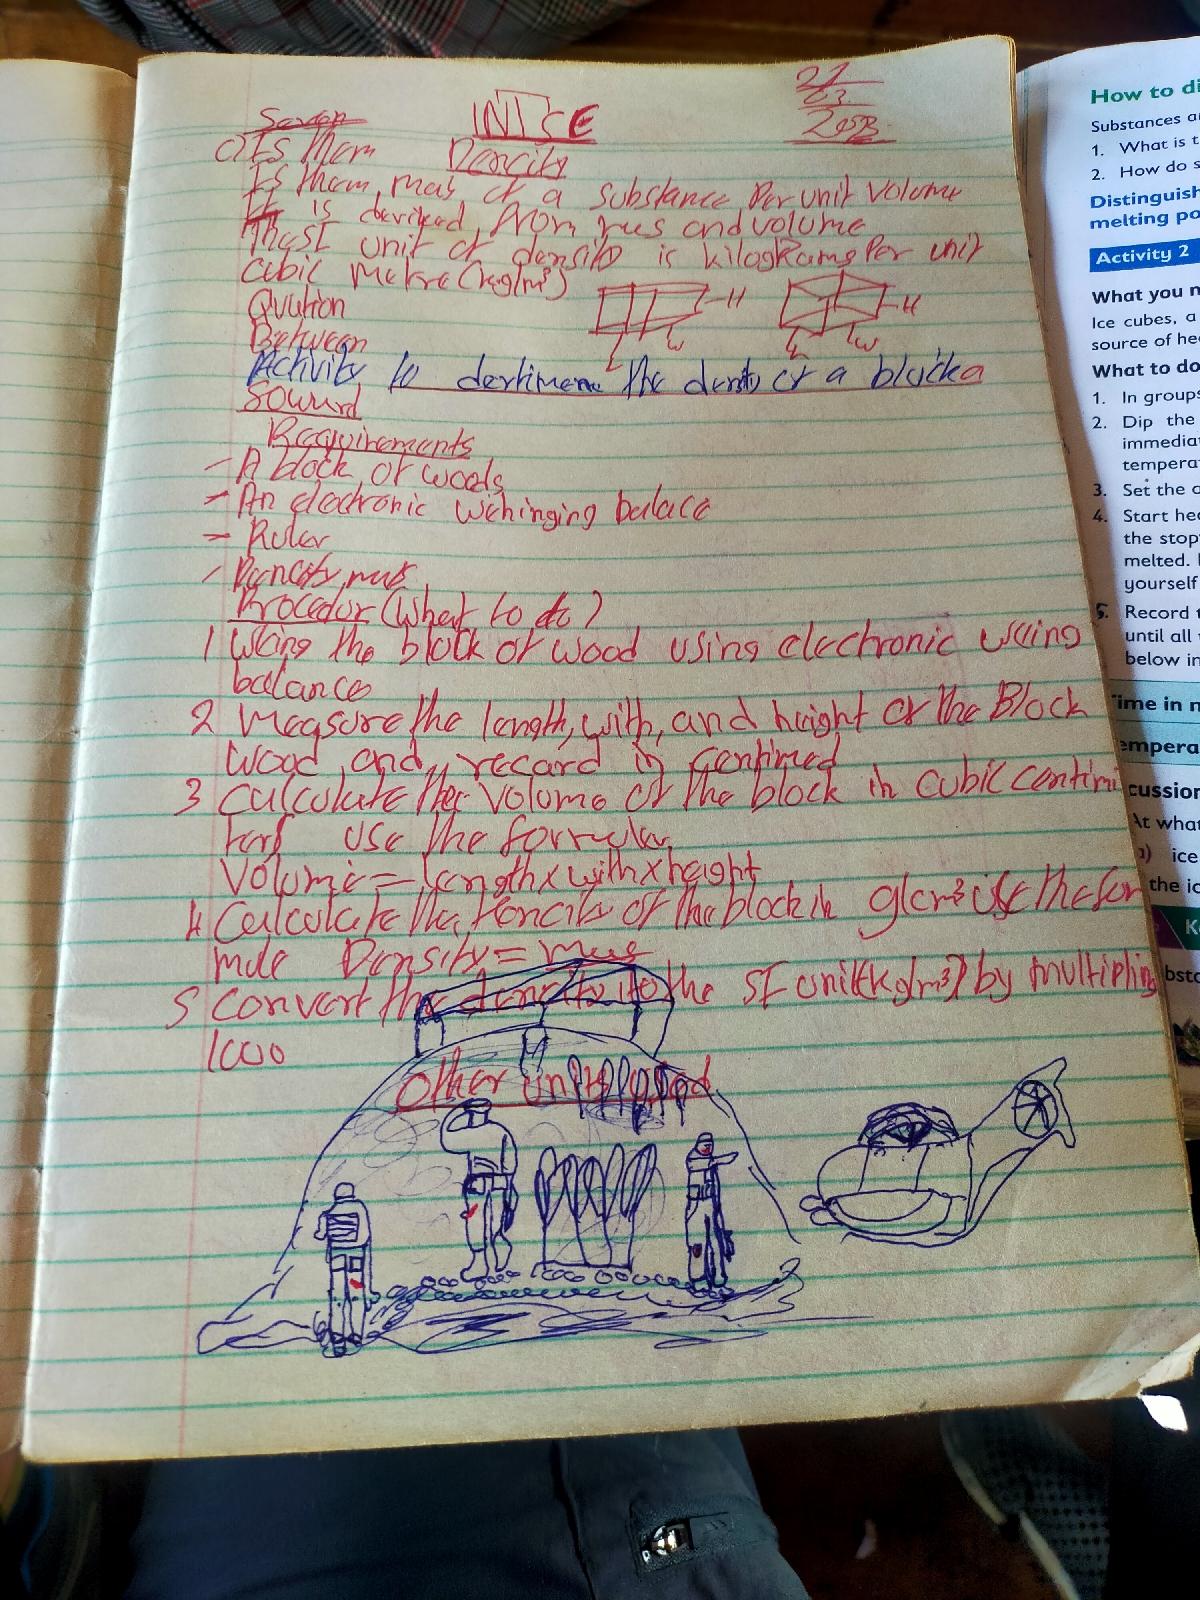 21
03
INTSCE
Density
Is them mas of a substance Per unit volume
It is derived from mas and volume
The SI unit of density is kilogRams Per unit
cubic Metre (kg/m³)
H
H
L
w
L
w
Between
Activity to dertimene the density of a blocka
Requirements
- A block of woods
- An electronic wehinging balace
- Ruler
Procedur (What to do)
1 Using the block of wood using electronic using
balance
2 Measure the length, with, and height of the Block
wood, and record in
3 Calculate the Volume of the block in cubic centime
ters use the formula
Volume = Length x with x height
4 Calculate the Dencity of the block in g/cm³ use the for
mule Density = mas
5 Convert the density to the SI unit (Kg/m³) by multipling
1000
Other unit
How to di
Substances a
1. What is t
2. How do s
Distinguish
melting po
Activity 2
What you n
Ice cubes, a
source of he
What to do
1. In groups
2. Dip the
immedia
tempera
3. Set the
4. Start hea
the stop
melted.
yourself
5. Record t
until all
below in
Time in m
empera
cussion
At what
ice
the ic
K
bsta